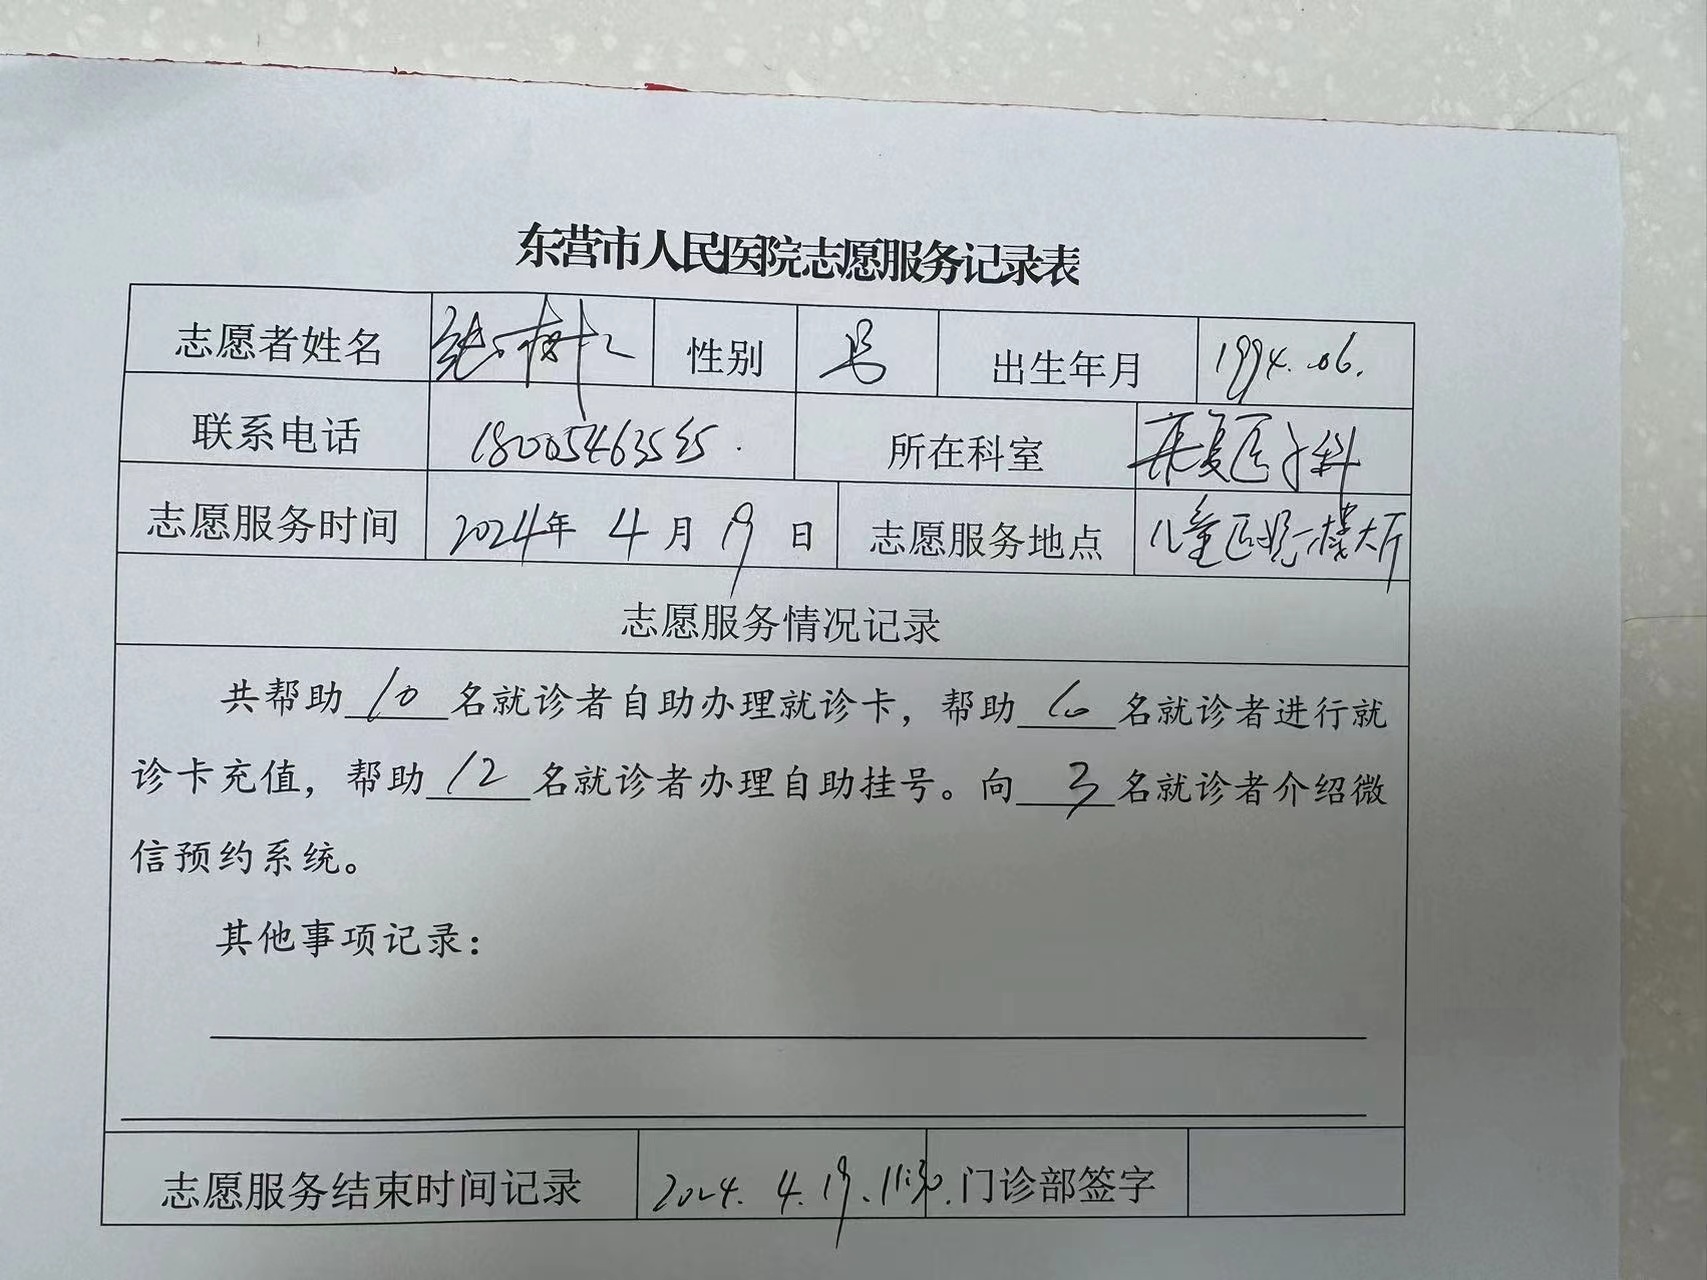 东营市人民医院志愿服务记录表
志愿者姓名 性别 男 出生年月 1994.06.
联系电话 所在科室 康复医学科
志愿服务时间 2024年 4月 19日 志愿服务地点 儿童医院一楼大厅
志愿服务情况记录
共帮助 10 名就诊者自助办理就诊卡，帮助 10 名就诊者进行就
诊卡充值，帮助 12 名就诊者办理自助挂号。向 3 名就诊者介绍微
信预约系统。
其他事项记录：
志愿服务结束时间记录 2024.4.19.11:30. 门诊部签字